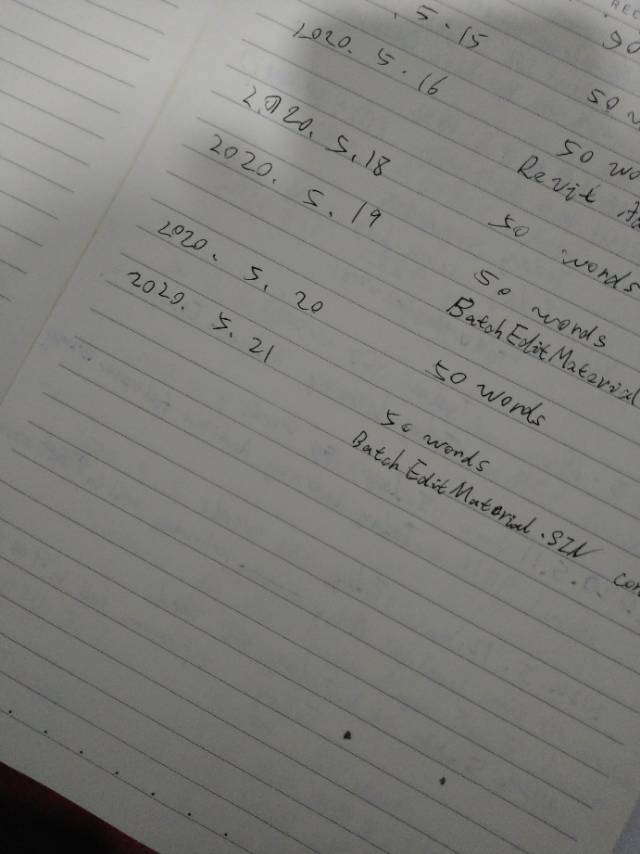 REC
. 5.15 50
2020. 5.16 50 w
2020. 5.18 50 wo
Revit
2020. 5.19 50 words
50 words
BatchEditMaterial
2020. 5. 20 50 words
2020. 5. 21 50 words
BatchEditMaterial.SLN con